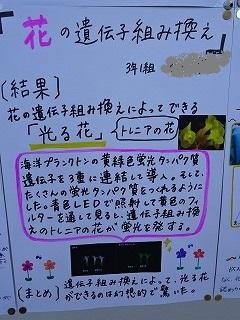 花の遺伝子組み換え
3年1組
〔結果〕
花の遺伝子組み換えによってできる
「光る花」
トレニアの花
海洋プランクトンの黄緑色蛍光タンパク質
遺伝子を3重に連結して導入。そして、
たくさんの蛍光タンパク質をつくれるようにし
た。青色LEDで照射して黄色のフィ
ルターを通して見ると、遺伝子組み換え
のトレニアの花が蛍光を発する。
〔まとめ〕
遺伝子組み換えによって、光る花
ができるのは幻想的で驚いた。